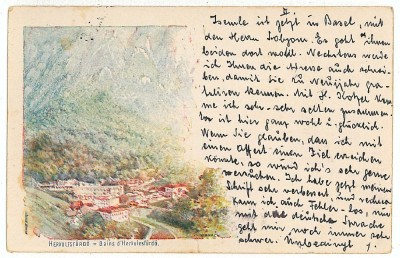 II
Isemle ist jetzt in Basel, mit
den Herrn Sobgom. Es geht ihnen
beiden dort wohl. Nächstens werde
ich Ihnen die Adresse auch schrei-
ben, damit Sie zu Neujahr gra-
tulieren können. Mit H. Kotzel kom-
me ich sehr-sehr selten zusammen.
Es ist hier ganz wohl u. glücklich.
Wenn Sie glauben, dass ich mit
einem Offert einen Ziel erreichen
könnte, so würd ich's sehr gerne
werden. Ich habe jetzt meinen
Schrift sehr verbessert, und
kann ich auch Fehler-Los, nur
mit deutsche Sprache
geht mir noch immer sehr
schwer.
HERKULESFÜRDŐ – Bains d'Herkulesfürdő.